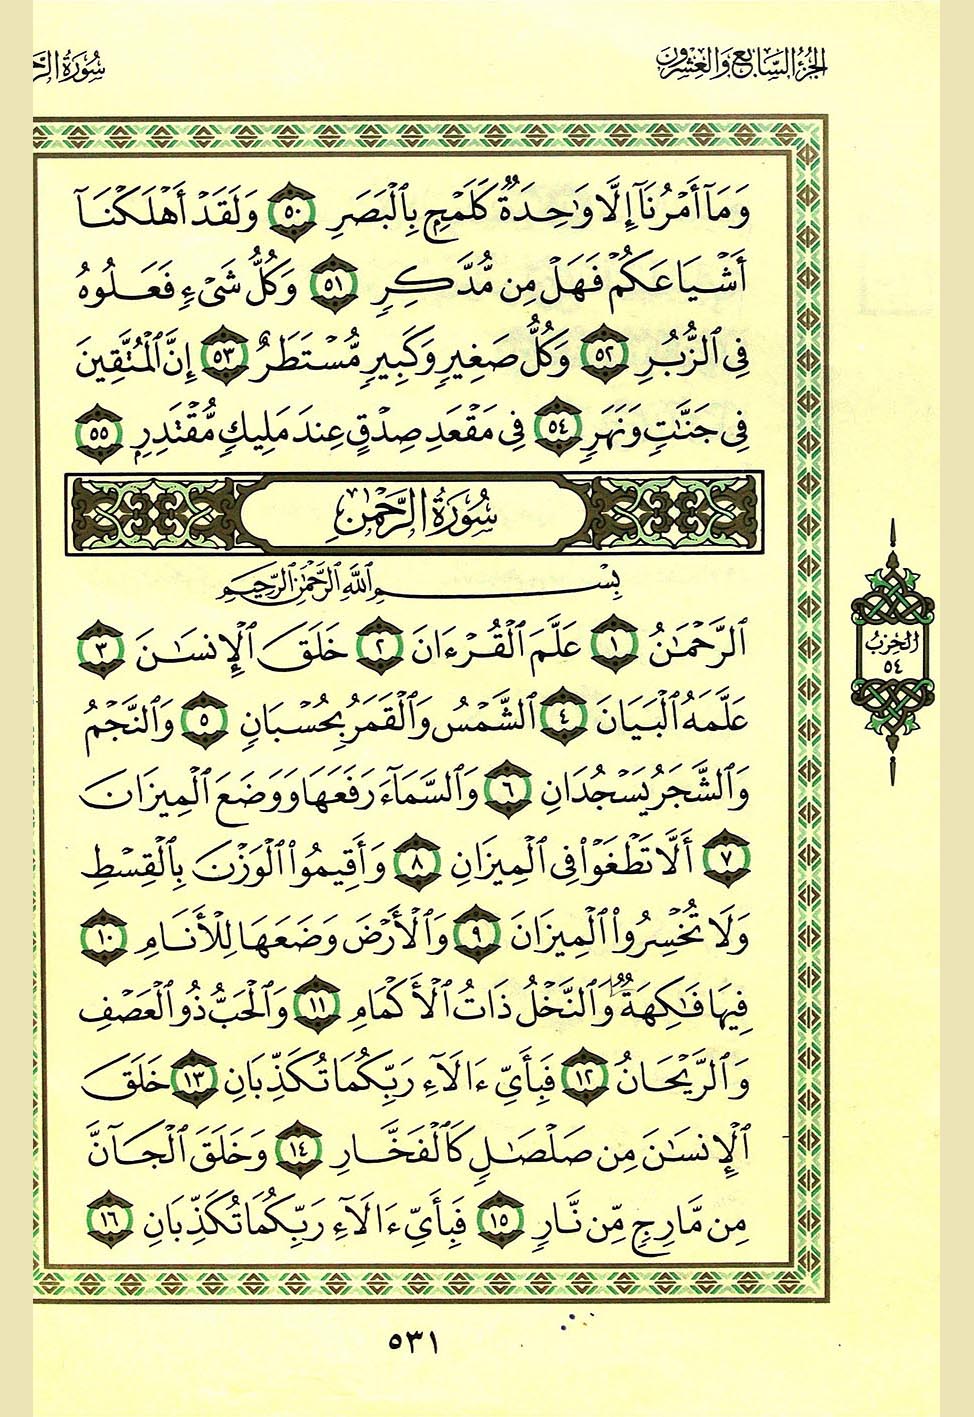 الجزء السابع والعشرون
سورة الرحمن
وَمَآ أَمْرُنَآ إِلَّا وَٰحِدَةٌ كَلَمْحٍۭ بِٱلْبَصَرِ ٥٠ وَلَقَدْ أَهْلَكْنَآ
أَشْيَاعَكُمْ فَهَلْ مِن مُّدَّكِرٍ ٥١ وَكُلُّ شَىْءٍ فَعَلُوهُ
فِى ٱلزُّبُرِ ٥٢ وَكُلُّ صَغِيرٍ وَكَبِيرٍ مُّسْتَطَرٌ ٥٣ إِنَّ ٱلْمُتَّقِينَ
فِى جَنَّٰتٍ وَنَهَرٍ ٥٤ فِى مَقْعَدِ صِدْقٍ عِندَ مَلِيكٍ مُّقْتَدِرٍۭ ٥٥
سُورَةُ الرَّحْمَٰنِ
بِسْمِ ٱللَّهِ ٱلرَّحْمَٰنِ ٱلرَّحِيمِ
ٱلرَّحْمَٰنُ ١ عَلَّمَ ٱلْقُرْءَانَ ٢ خَلَقَ ٱلْإِنسَٰنَ ٣
عَلَّمَهُ ٱلْبَيَانَ ٤ ٱلشَّمْسُ وَٱلْقَمَرُ بِحُسْبَانٍ ٥ وَٱلنَّجْمُ
وَٱلشَّجَرُ يَسْجُدَانِ ٦ وَٱلسَّمَآءَ رَفَعَهَا وَوَضَعَ ٱلْمِيزَانَ
٧ أَلَّا تَطْغَوْا۟ فِى ٱلْمِيزَانِ ٨ وَأَقِيمُوا۟ ٱلْوَزْنَ بِٱلْقِسْطِ
وَلَا تُخْسِرُوا۟ ٱلْمِيزَانَ ٩ وَٱلْأَرْضَ وَضَعَهَا لِلْأَنَامِ ١٠
فِيهَا فَٰكِهَةٌ وَٱلنَّخْلُ ذَاتُ ٱلْأَكْمَامِ ١١ وَٱلْحَبُّ ذُو ٱلْعَصْفِ
وَٱلرَّيْحَانُ ١٢ فَبِأَىِّ ءَالَآءِ رَبِّكُمَا تُكَذِّبَانِ ١٣ خَلَقَ
ٱلْإِنسَٰنَ مِن صَلْصَٰلٍ كَٱلْفَخَّارِ ١٤ وَخَلَقَ ٱلْجَآنَّ
مِن مَّارِجٍ مِّن نَّارٍ ١٥ فَبِأَىِّ ءَالَآءِ رَبِّكُمَا تُكَذِّبَانِ ١٦
الحزب
٥٤
٥٣١